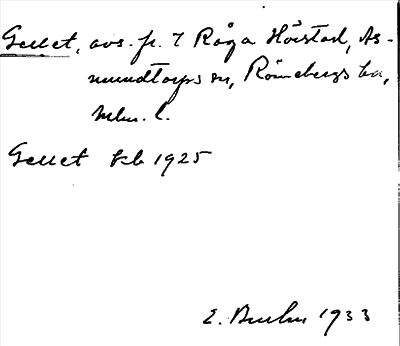 Gellet, avs. fr. 7 Råga Hörstad, As-
mundtorps sn, Rönnebergs hd,
Mlm. l.
Gellet kb 1925
E. Bruhn 1933